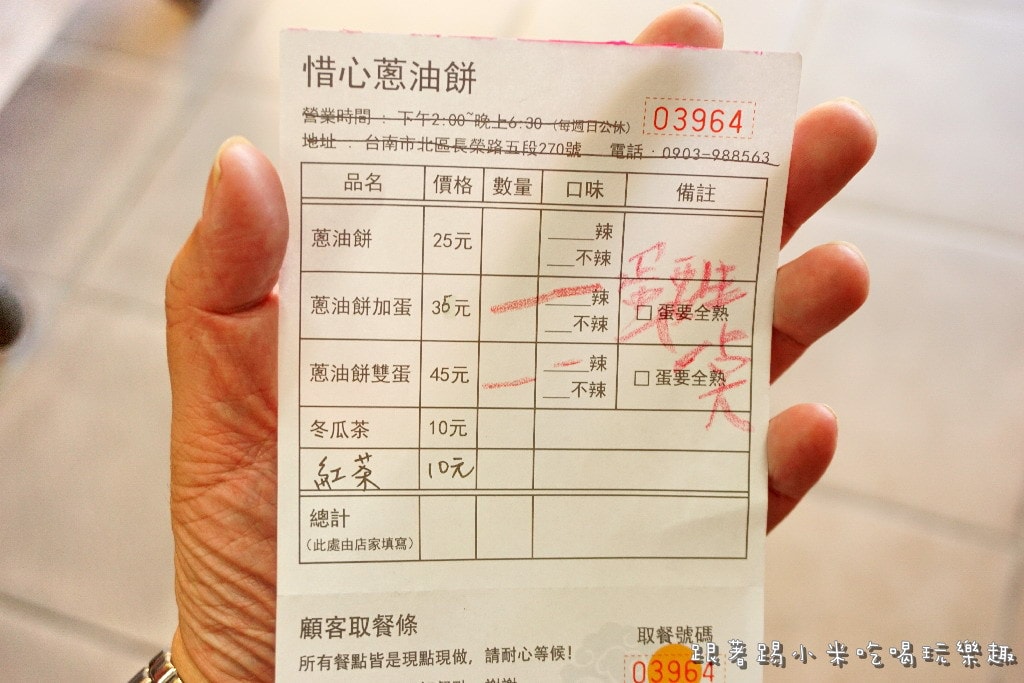 惜心蔥油餅
營業時間：下午2:00~晚上6:30（每週日公休）
03964
地址：台南市北區長榮路五段270號 電話：0903-988563
品名 價格 數量 口味 備註
蔥油餅 25元 ____辣
___不辣
蔥油餅加蛋 35元 一 ____辣
___不辣 □ 蛋要全熟
蔥油餅雙蛋 45元 二 ____辣
___不辣 □ 蛋要全熟
冬瓜茶 10元
紅茶 10元
總計
（此處由店家填寫）
顧客取餐條
所有餐點皆是現點現做，請耐心等候！
取餐號碼
03964
跟著踢小米吃喝玩樂趣